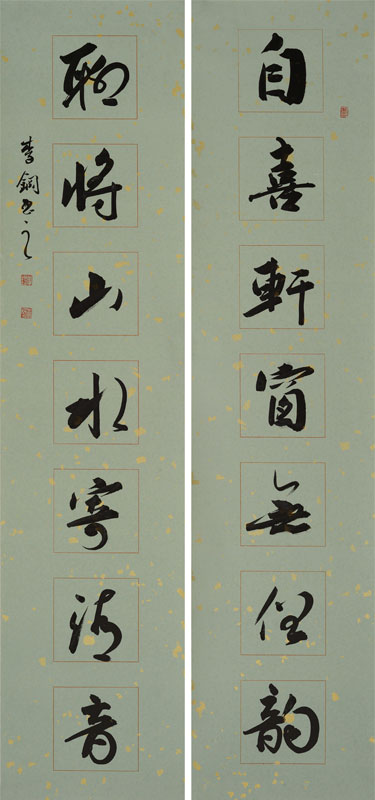 自喜軒窗無俗韻
聊將山水寄清音
李鋼書之